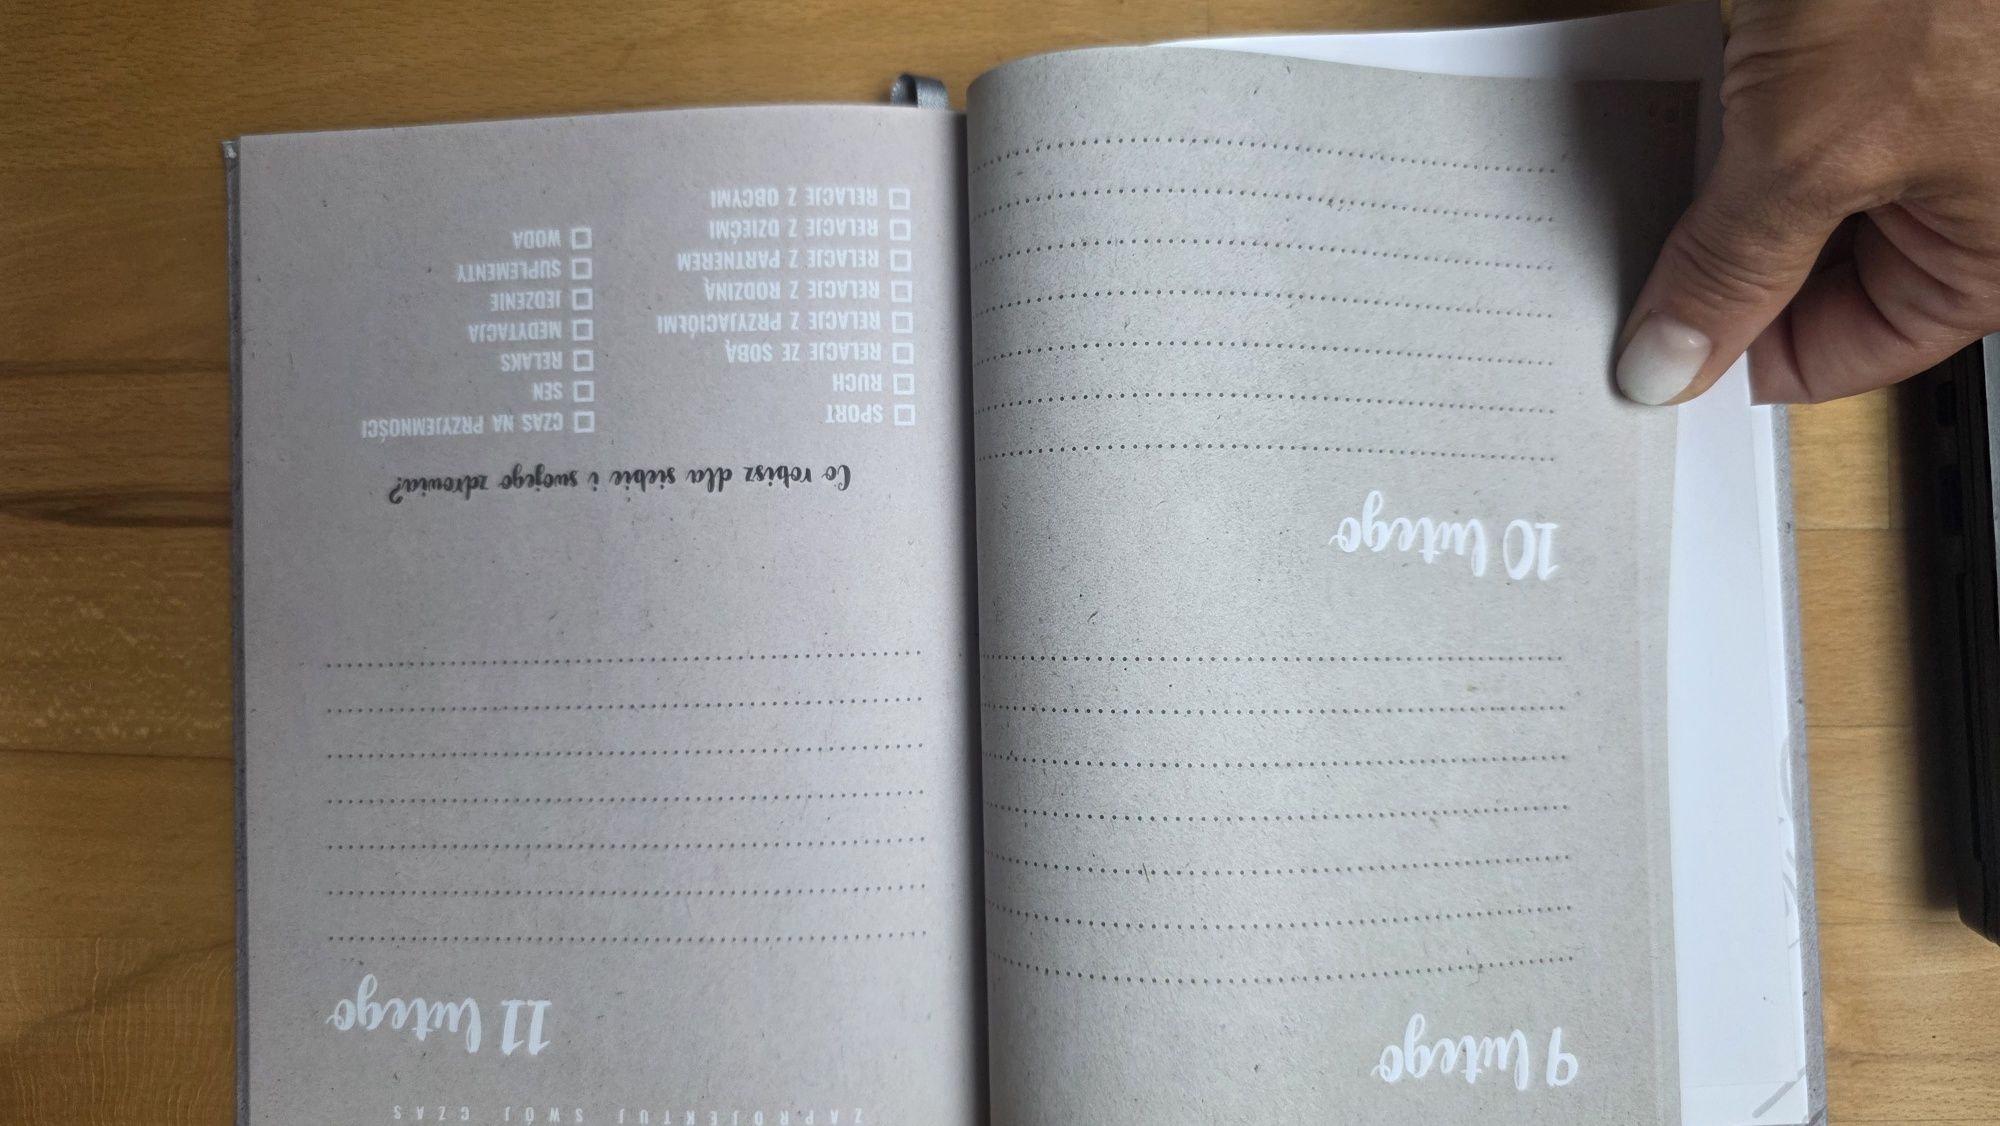 9 lutego
10 lutego
ZAPROJEKTUJ SWÓJ CZAS
11 lutego
Co robisz dla siebie i swojego zdrowia?
SPORT
RUCH
RELACJE ZE SOBĄ
RELACJE Z PRZYJACIÓŁMI
RELACJE Z RODZINĄ
RELACJE Z PARTNEREM
RELACJE Z DZIEĆMI
RELACJE Z OBCYMI
CZAS NA PRZYJEMNOŚCI
SEN
RELAKS
MEDYTACJA
JEDZENIE
SUPLEMENTY
WODA